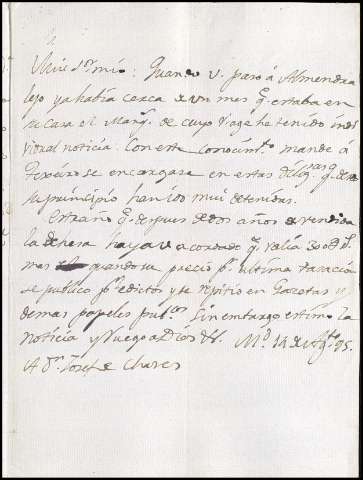 mio: Quando V. paso á Almendra
lejo ya había cerca de un mes q. estaba en
su casa el Marq. de cuyo viage he tenido indi
vidual noticia. Con este conocim.to mande á
se encargase en estas dilig.s q. desde
su principio han sido mui detenidas.
Extraño q. despues de dos años de vendida
la dehesa haya V. acordado q. valia 300
mas quando su precio p.r ultima tasacion
se publico p.r edictos y se repitio en Gazetas y
demas papeles pub.cos Sin embargo estimo la
noticia y ruego a Dios &. M.d 14 de Ag.to 95.
A D.n Josef de Chaves